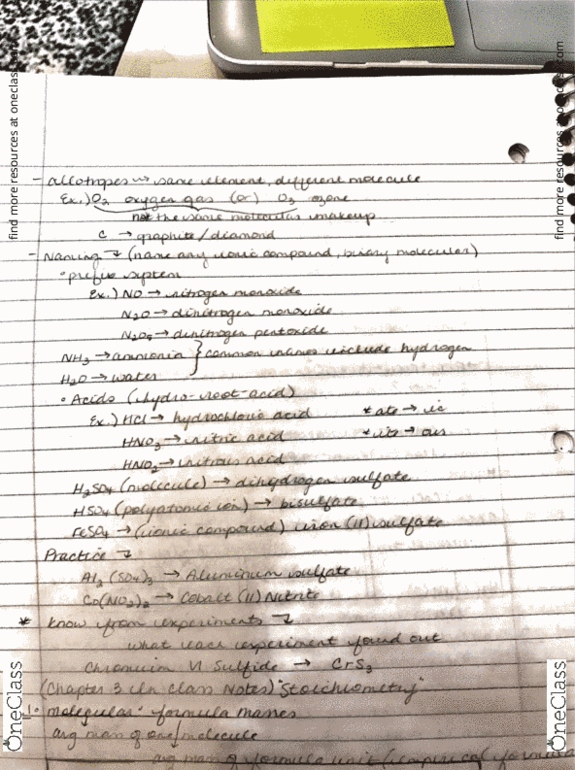 - allotropes → same element, different molecule
Ex.) O₂ oxygen gas (or) O₃ ozone
not the same molecular makeup
C → graphite/diamond
- Naming ↴ (name any ionic compound, binary molecular)
• prefix system
Ex.) NO → nitrogen monoxide
N₂O → dinitrogen monoxide
N₂O₅ → dinitrogen pentoxide
NH₃ → ammonia } common names include hydrogen
H₂O → water
• Acids (hydro-root-acid)
Ex.) HCl → hydrochloric acid *ate → ic
HNO₃ → nitric acid *ite → ous
HNO₂ → nitrous acid
H₂SO₄ (molecule) → dihydrogen sulfate
HSO₄ (polyatomic ion) → bisulfate
FeSO₄ → (ionic compound) iron (II) sulfate
Practice ↴
Al₂(SO₄)₃ → Aluminum sulfate
Co(NO₂)₂ → Cobalt (II) Nitrite
* know from experiments ↴
what each experiment found out
Chromium VI Sulfide → CrS₃
(Chapter 3 in class Notes) "Stoichiometry"
1. molecular formula masses
avg mass of one molecule
avg mass of formula unit (empirical formula
find more resources at oneclass
find more resources at oneclass.com
OneClass
OneClass